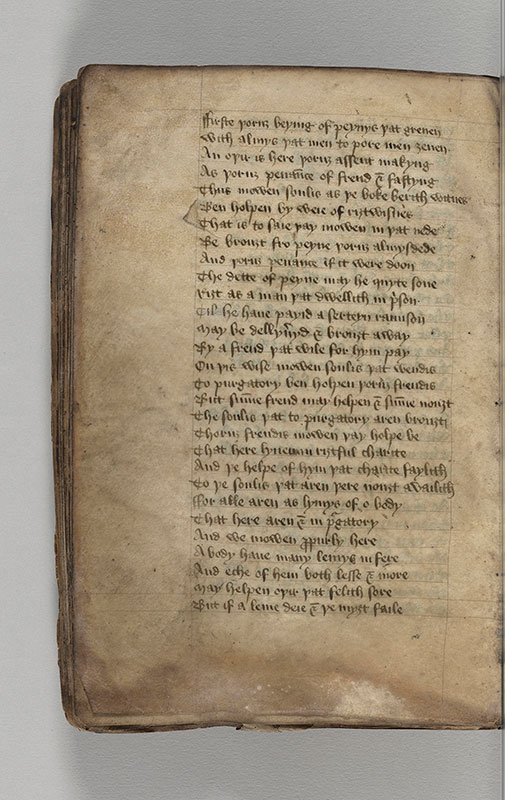 Ffirste þoruȝ beyng of peynys þat greuen
With almys þat men to pore men ȝeuen
An oþir is here þoruȝ assent makyng
As þoruȝ penaunce of frend & fastyng
Thus mowen soulis as þe boke berith witnes
Ben holpen by weie of riȝtwisnes
That is to saie þay mowen in þat nede
Be brouȝt fro peyne þoruȝ almysdede
And þoruȝ penance if it were doon
The dette of peyne may he quyte sone
Riȝt as a man þat dwellith in p̉son
Til he haue payid a serteyn raunson
May be delyủyd & brouȝt away
By a frend þat wile for hym pay
On þis wise mowen soulis þat wendis
To purgatory ben holpen þoruȝ frendis
But su̅me frend may helpen & su̅me nouȝt
The soulis þat to purgatory aren brouȝt
Thoruȝ frendis mowen þay holpe be
That here lyueden in riȝtful charite
And þe helpe of hym þat charite faylith
To þe soulis þat aren þere nouȝt availith
Ffor alle aren as lymys of o body
That here aren & in p̉gatory
And we mowen ꝓpurly here
A body haue many lemys in fere
And eche of hem both lesse & more
May helpen oþir þat felith sore
But if a leme deie & þe myȝt faile